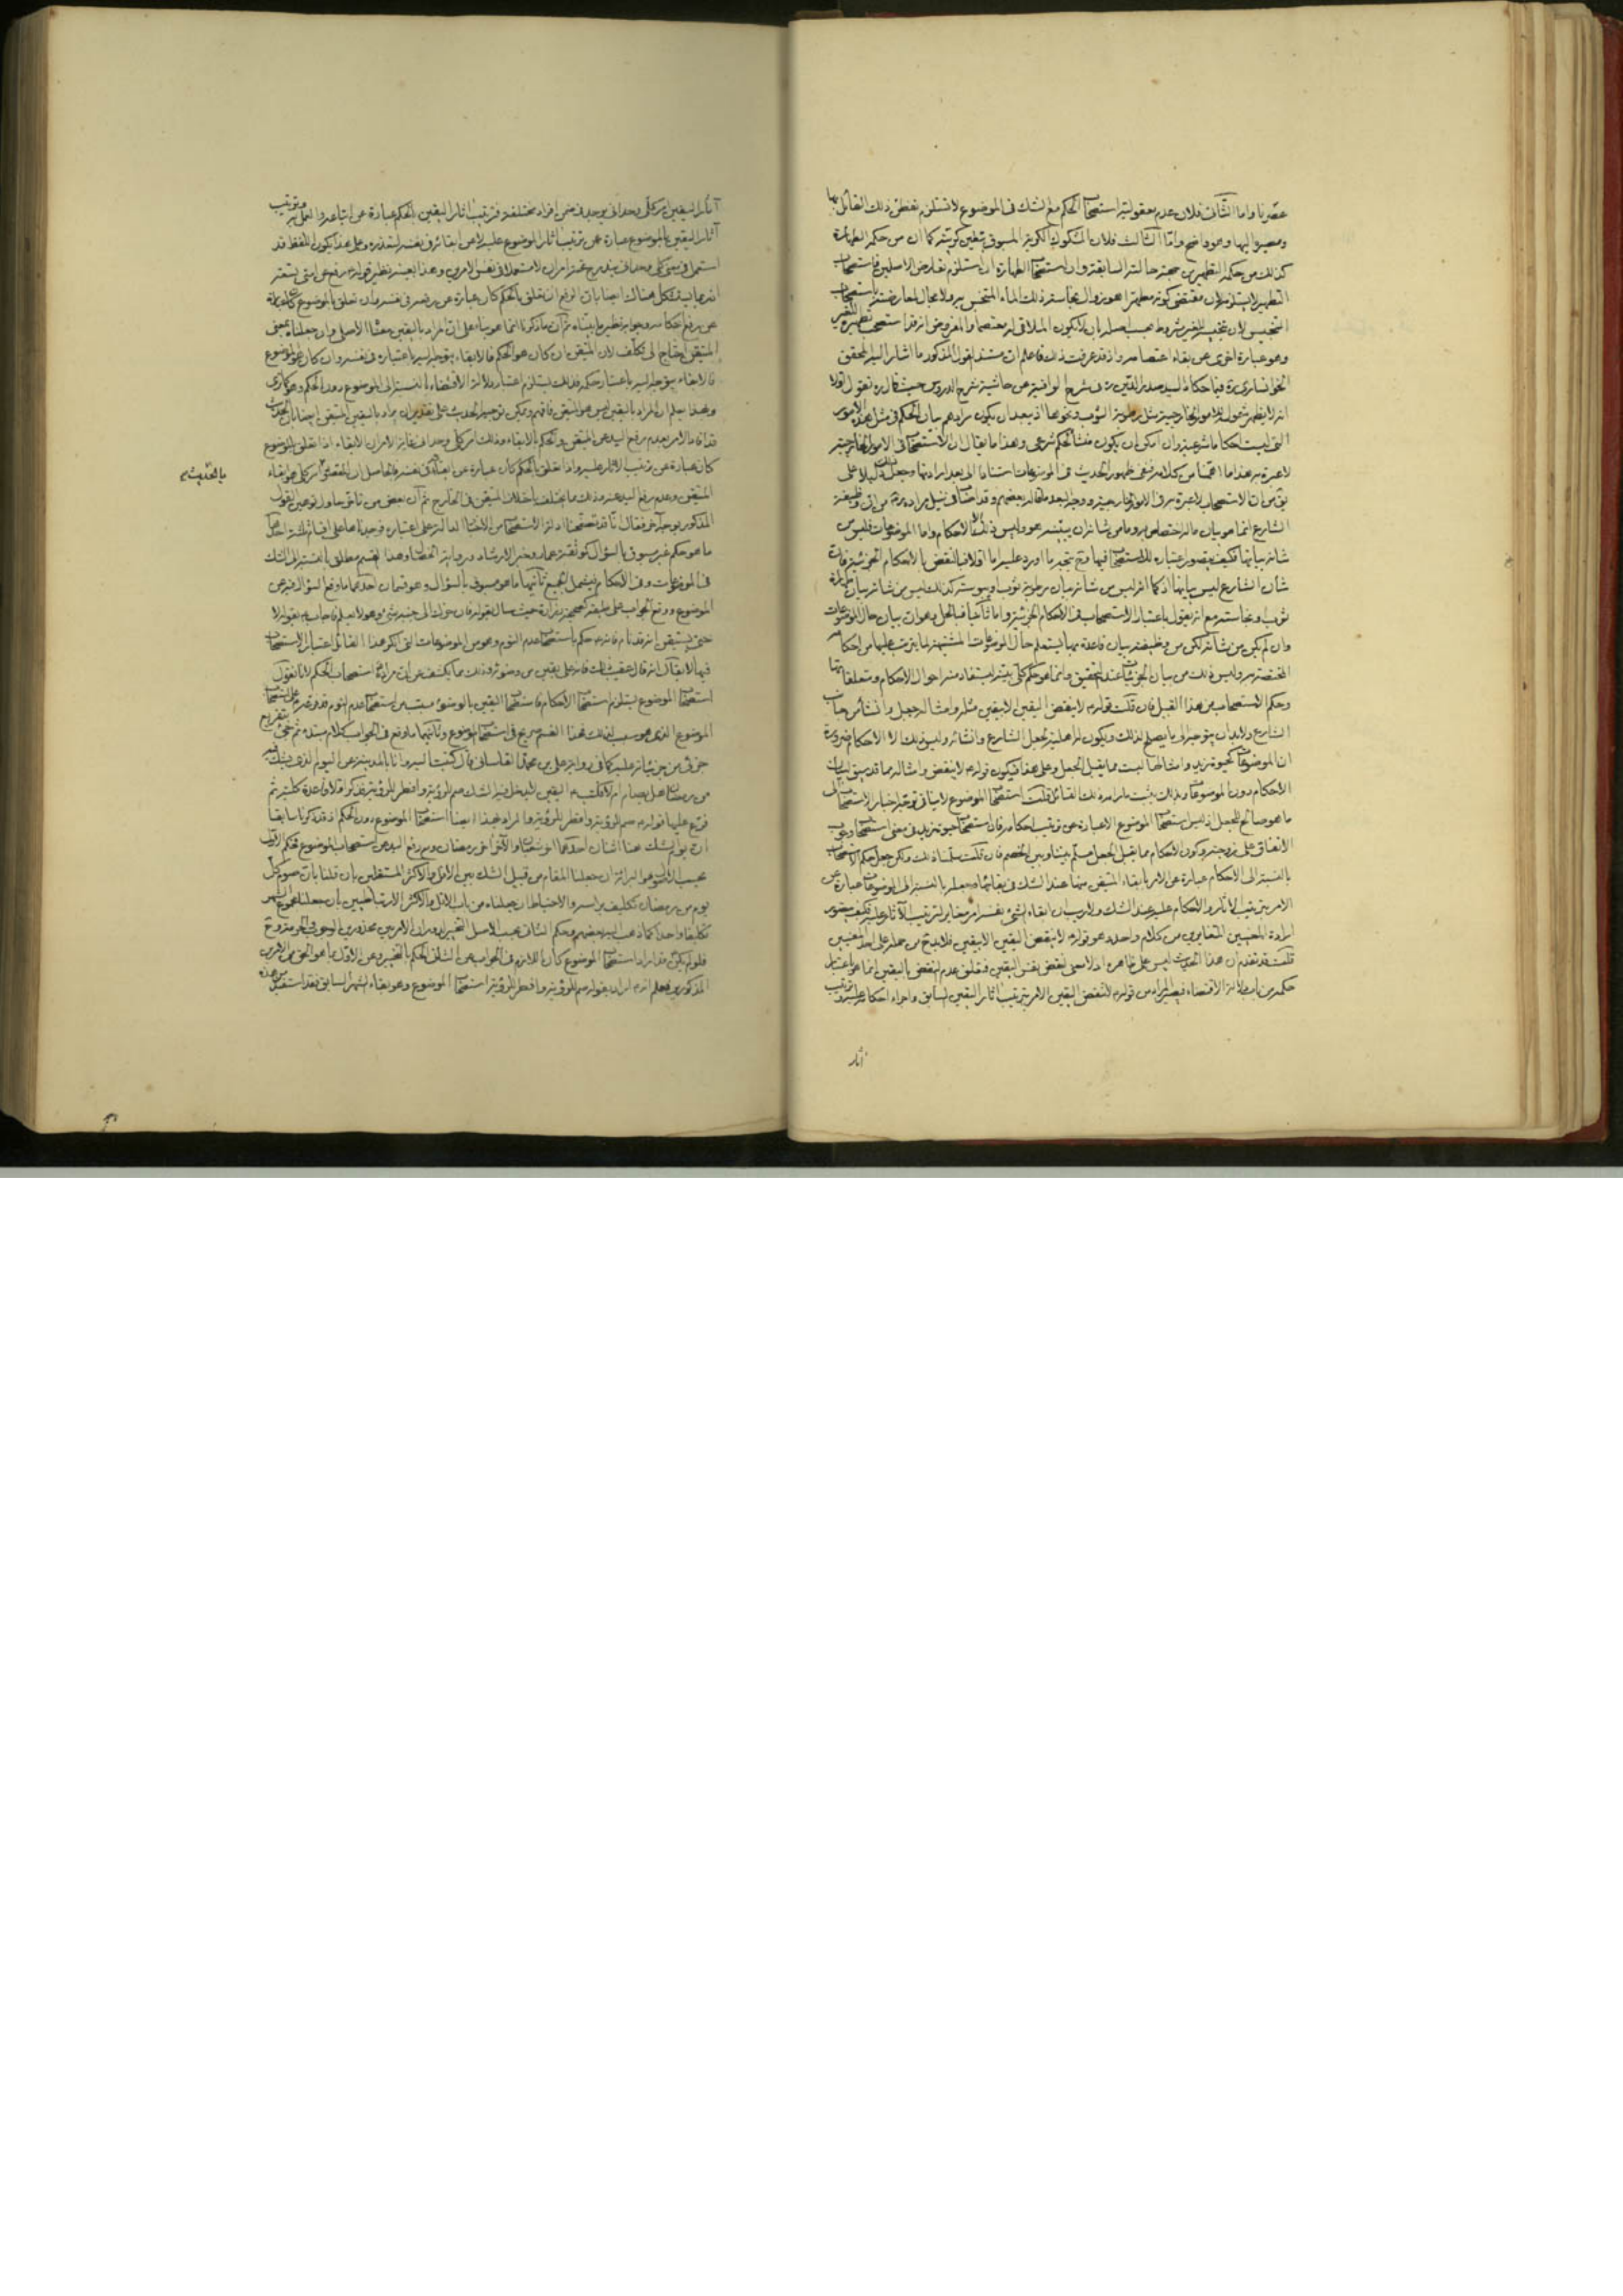 عقوبا واما الثانى فلان عدم معقولية استصحاب الحكم مع الشك فى الموضوع لا تستلزم تفطن ذلك القائل بها
ومصيره اليها وهو واضح واما الثالث فلان المشكوك الكرية المسبوق بتعين كريته كما ان من حكمه الطهارة
كذلك من حكمه التطهير من حالته السابقة وان استصحاب الطهارة ان استلزم تعارض الاصلين فاستصحاب
التطهير لا يستلزم لان مقتضى كونه مطهرا هو زوال نجاسة ذلك الماء المتنجس به ولا مجال لمعارضته باستصحاب
التنجيس لان تنجيسه للغير مشروط بحسب اصله بان لا يكون الملاقى له معتصما والمفروض استصحاب تطهيره للغير
وهو عبارة اخرى عن بقاء اعتصامه واذ قد عرفت ذلك فاعلم ان مستند القول المذكور ما اشار اليه المحقق
الخوانسارى ره فيما حكاه السيد صدر الدين ره فى شرح الوافية عن حاشية شرح الدروس حيث قال ره نعقول اولا
انه لا يظهر شموله للامور الخارجية مثل رطوبة الثوب ونحوها اذ يبعد ان يكون مرادهم بيان الحكم فى مثل هذه الامور
التى ليست احكاما شرعية وان امكن ان يكون منشأ لحكم شرعى وهذا ما يقال ان الاستصحاب فى الامور الخارجية
لا عبرة به هذا ما اهمنا من كلامه فنفى ظهور الحديث فى الموضوعات استنادا الى بعد ارادتها وجعل ذلك دليلا على
من ان الاستصحاب لا عبرة به فى الامور الخارجية ووجه البعد ما قاله بعضهم وقد اصاب فى نيل مراده ره من ان وظيفة
الشارع انما هو بيان ماله اختصاص به وما من شانه ان يبينه هو وليس ذلك الا الاحكام واما الموضوعات فليس من
شانه بيانها فكيف يتصور اعتباره للاستصحاب فيها وح يتجه ما اورد عليه اما اولا فبالنقض بالاحكام الجزئية فان
شان الشارع ليس بيانها اذ كما انه ليس من شانه بيان رطوبة ثوب او يبوسته كذلك ليس من شانه بيان طهارة
ثوب او نجاسته مع انه يقول باعتبار الاستصحاب فى الاحكام الجزئية واما ثانيا فبالحل وهو ان بيان حال الموضوعات
وان لم يكن من شانه لكن من وظيفته بيان قاعدة بها يستعلم حال الموضوعات المشتبهة لما يترتب عليها من احكامه
المختصة به وليس ذلك من بيان الجزئيات عند التحقيق وانما هو حكم كلى يستفاد منه احوال الاحكام ومتعلقاتها
وحكم الاستصحاب من هذا القبيل فان قلت قوله ع لا ينقض اليقين الا بيقين مثله وامثاله جعل وانشاء من جانب
الشارع ولابد ان يتوجه الى ما يصلح لذلك ويكون له اهلية لجعل الشارع وانشائه وليس ذلك الا الاحكام ضرورة
ان الموضوعات كحيوة زيد وامثالها ليست مما يقبل الجعل وعلى هذا فيكون قوله لا ينقض وامثاله مما قد سيق لبيان
الاحكام دون الموضوعات وبذلك يثبت ما رامه ذلك القائل قلت استصحاب الموضوع لا ينافى توجه اخبار الاستصحاب الى
ما هو صالح للجعل اذ ليس استصحاب الموضوع الا عبارة عن ترتيب احكامه فان استصحاب حيوة زيد فى معنى استصحاب وجوب
الانفاق على زوجته وكون الاحكام مما يقبل الجعل مسلم بيننا وبين الخصم فان قلت سلمنا ذلك ولكن جعل حكم الاستصحاب
بالنسبة الى الاحكام عبارة عن الامر بابقاء المتيقن منها عند الشك فى بقائها وجعله بالنسبة الى الموضوعات عبارة عن
الامر بترتيب الاثار والاحكام عليه عند الشك ولاريب ان ابقاء الشئ بنفسه امر مغاير لترتيب الاثار عليه فكيف يتصور
ارادة المعنيين المتغايرين من كلام واحد وهو قوله ع لا ينقض اليقين الا بيقين فلابد ح من حمله على احد المعنيين
قلت قد تقدم ان هذا الحديث ليس على ظاهره اذ لا معنى لنقض نفس اليقين فتعلق عدم النقض باليقين انما هو باعتبار
حكمه من باب دلالة الاقتضاء فيصير المراد من قوله ع لا تنقض اليقين الامر بترتيب اثار اليقين السابق واجراء احكامه عليه وترتيب
آثار
آثار اليقين امر كلى وحدانى يوجد فى ضمن افراد مختلفة فترتيب اثار اليقين بالحكم عبارة عن اتباعه والعمل به وترتيب
آثار اليقين بالموضوع عبارة عن ترتيب اثار الموضوع عليه لا عن ابقائه فى نفسه لتعذره وعلى هذا يكون اللفظ قد
استعمل فى معنى كلى وحدانى يندرج تحته امران لا مستعملا فى نفس الامرين وهذا بعينه نظير قوله ع رفع عن امتى تسعة
عن رفع احكامه وجوابه نظير ما بيناه ثم ان ما ذكرنا انما هو بناء على ان المراد باليقين معناه الاصلى وان جعلناه بمعنى
المتيقن احتاج الى تكلف لان المتيقن ان كان هو الحكم فالابقاء يتوجه اليه باعتباره فى نفسه وان كان هو الموضوع
فالابقاء يتوجه اليه باعتبار حكمه وذلك يستلزم اعتبار دلالة الاقتضاء بالنسبة الى الموضوع دون الحكم وهو كما ترى
وبهذا يعلم ان المراد باليقين ليس هو المتيقن فافهم ويمكن توجيه الحديث على تقدير ان يراد باليقين المتيقن ايضا بان الحديث
قد افاد الامر بعدم رفع اليد عن المتيقن والحكم بالابقاء وذلك امر كلى وحدانى غايته الامر ان الابقاء اذا تعلق بالموضوع
كان عبارة عن ترتيب الاثار عليه واذا تعلق بالحكم كان عبارة عن ابقائه فى نفسه والحاصل ان المقصود امر كلى هو ابقاء
المتيقن وعدم رفع اليد عنه وذلك مما يختلف باختلاف المتيقن فى الخارج ثم ان بعض من تاخر حاول توهين القول
المذكور بوجه آخر فقال انا قد تصفحنا ادلة الاستصحاب من الاخبار الدالة على اعتباره فوجدناها على اقسام ثلثة احدها
ما هو حكم غير مسبوق بالسؤال كموثقة عمار وخبر الارشاد ورواية الخصال وهذا القسم مطلق بالنسبة الى الشك
فى الموضوعات وفى الاحكام فيشمل الجميع ثانيها ما هو مسبوق بالسؤال وهو قسمان احدهما ما وقع السؤال فيه عن
الموضوع ووقع الجواب على طبقه كصحيحة زرارة حيث سأل بقوله فان حرك الى جنبه شئ وهو لا يعلم فاجاب ع بقوله لا
حتى يستيقن انه قد نام فانه ع حكم باستصحاب عدم النوم وهو من الموضوعات التى انكر هذا القائل اعتبار الاستصحاب
فيها لا يقال انه قال عقيب ذلك فانه على يقين من وضوئه وذلك مما يكشف عن ان مراده استصحاب الحكم لانا نقول
استصحاب الموضوع يستلزم استصحاب الاحكام فاستصحاب اليقين بالوضوء مسبب من استصحاب عدم النوم
الموضوع الذى هو سبب لذلك فهذا القسم صريح فى استصحاب الموضوع وثانيهما ما وقع فى الجواب كلام مبتدء ثم بتفريع
جزئى من جزئياته عليه كما فى رواية على بن محمد القاسانى قال كتبت اليه وانا بالمدينة عن اليوم الذى يشك فيه
من رمضان هل يصام ام لا فكتب ع اليقين لا يدخل فيه الشك صم للرؤية وافطر للرؤية فذكر اولا قاعدة كلية ثم
فرع عليها قوله ع صم للرؤية وافطر للرؤية والمراد بهذا ايضا استصحاب الموضوع دون الحكم اذ قد ذكرنا سابقا
ان يوم الشك هنا اثنان احدهما اخر شعبان والاخر اخر رمضان ومع رفع اليد عن استصحاب الموضوع فحكم الاول
بحسب الاصول هو البرائة ان جعلنا المقام من قبيل الشك بين الاقل والاكثر المستقلين بان قلنا بان صوم كل
يوم من رمضان تكليف براسه والاحتياط ان جعلناه من باب الاقل والاكثر الارتباطيين بان جعلنا مجموع الشهر
تكليفا واحدا كما ذهب اليه بعضهم وحكم الثانى بحسب الاصل التخيير لدوران الامر بين محذورين الوجوب والحرمة وح
فلو لم يكن قد اراد استصحاب الموضوع كان اللازم فى الجواب عن الثانى الحكم بالتخيير وعن الاول بما هو الحق من الامرين
المذكورين فعلم انه ع اراد بقوله صم للرؤية وافطر للرؤية استصحاب الموضوع وهو بقاء الشهر السابق